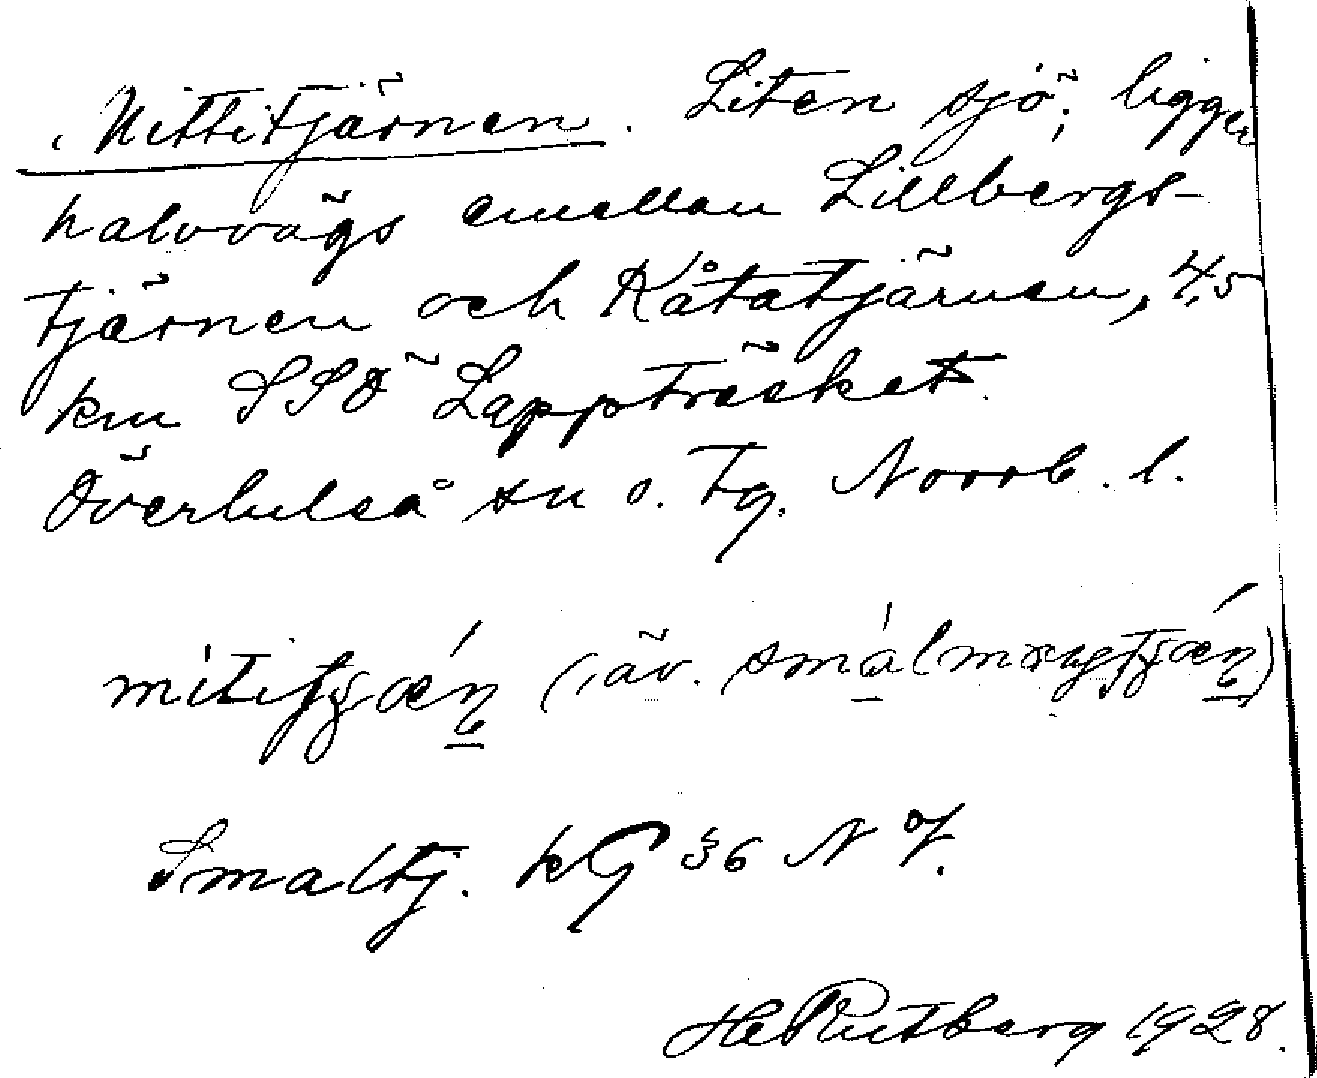 Mittitjärnen. Liten sjö; ligger
halvvägs emellan Lillbergs-
tjärnen och Kåtatjärnen, 4,5
km SSÖ Lappträsket
Överluleå sn o. tg. Norrb. l.
(äv.
Smaltj. kG 36 N
He Rutberg 1928.